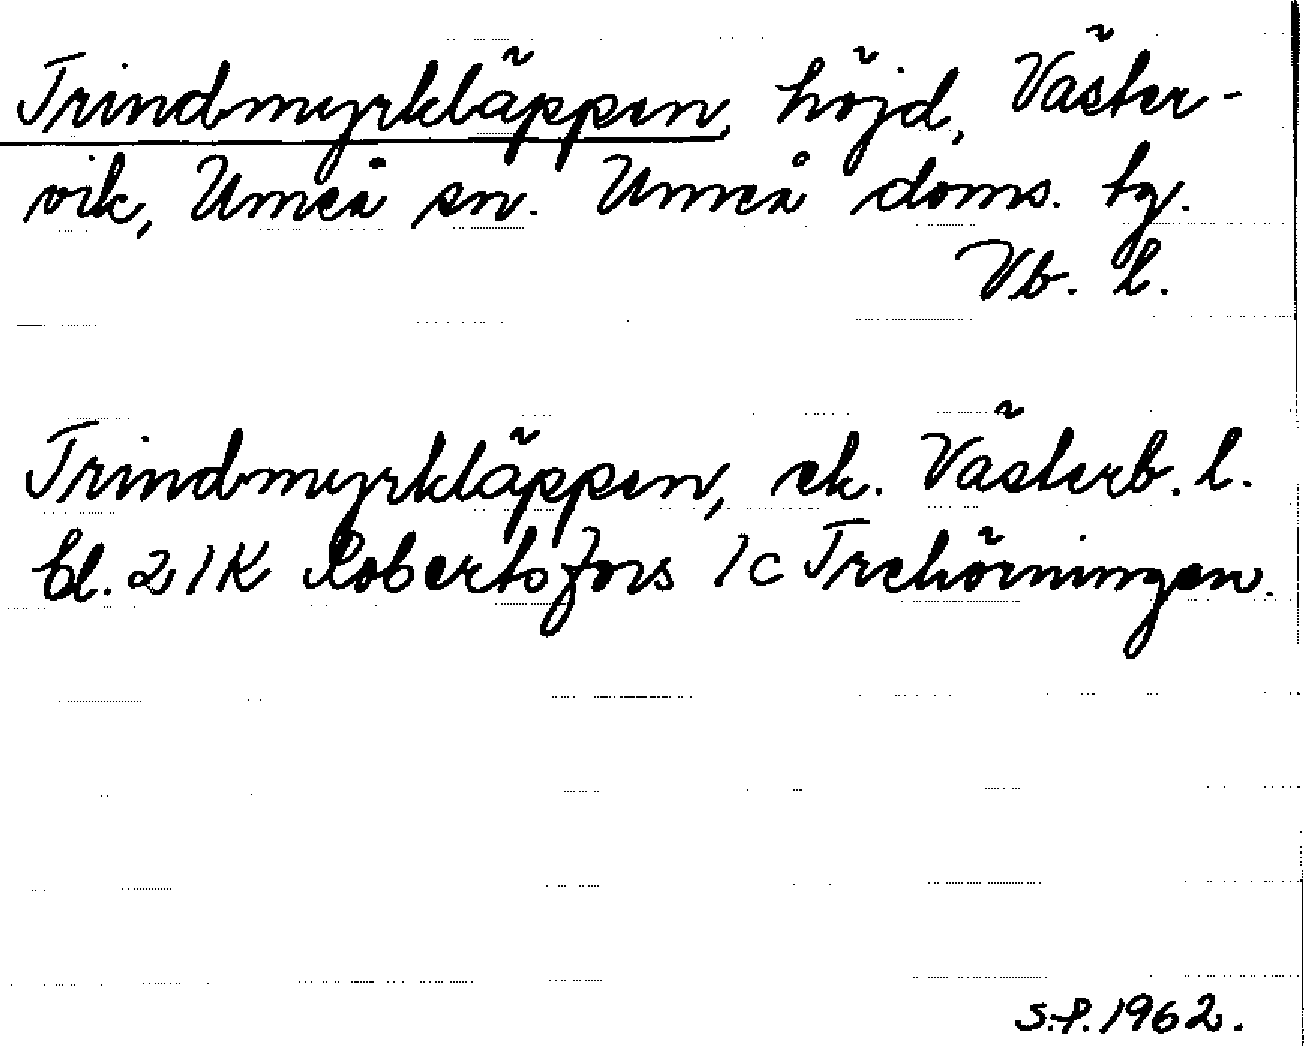 Trindmyrkläppen, höjd, Väster-
vik, Umeå sn. Umeå doms. tg.
Vb. l.
Trindmyrkläppen, ek. Västerb. l.
bl. 21K Robertsfors 1c Trehörningen.
S.P. 1962.